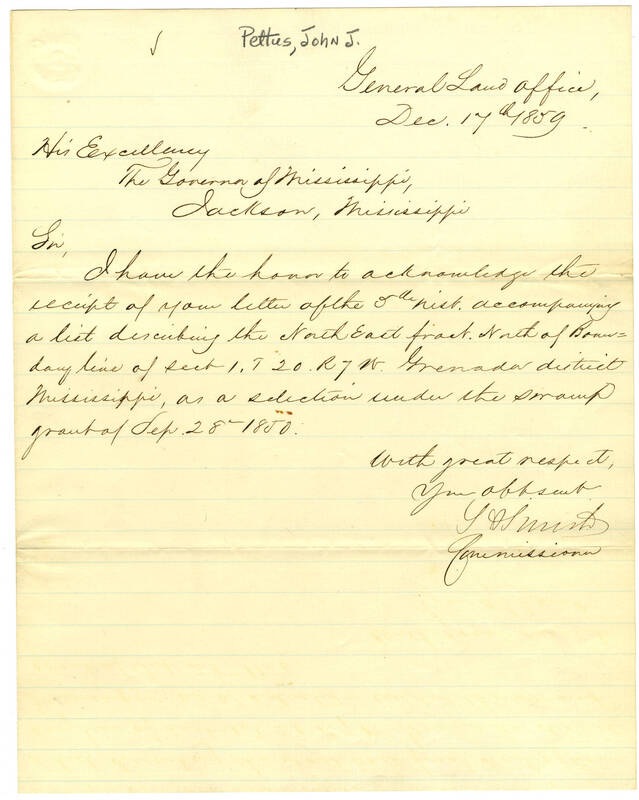 Pettus, John J.
General Land Office,
Dec. 17th 1859.
His Excellency
The Governor of Mississippi,
Jackson, Mississippi
Sir,
I have the honor to acknowledge the
receipt of your letter of the 5th inst. accompanying
a list describing the North East fract. North of Boun=
dary line of sect 1. T 20. R 7 W. Grenada district
Mississippi, as a selection under the swamp
grant of Sep. 28th 1850.
With great respect,
Your obt. servt.
S A Smith
Commissioner